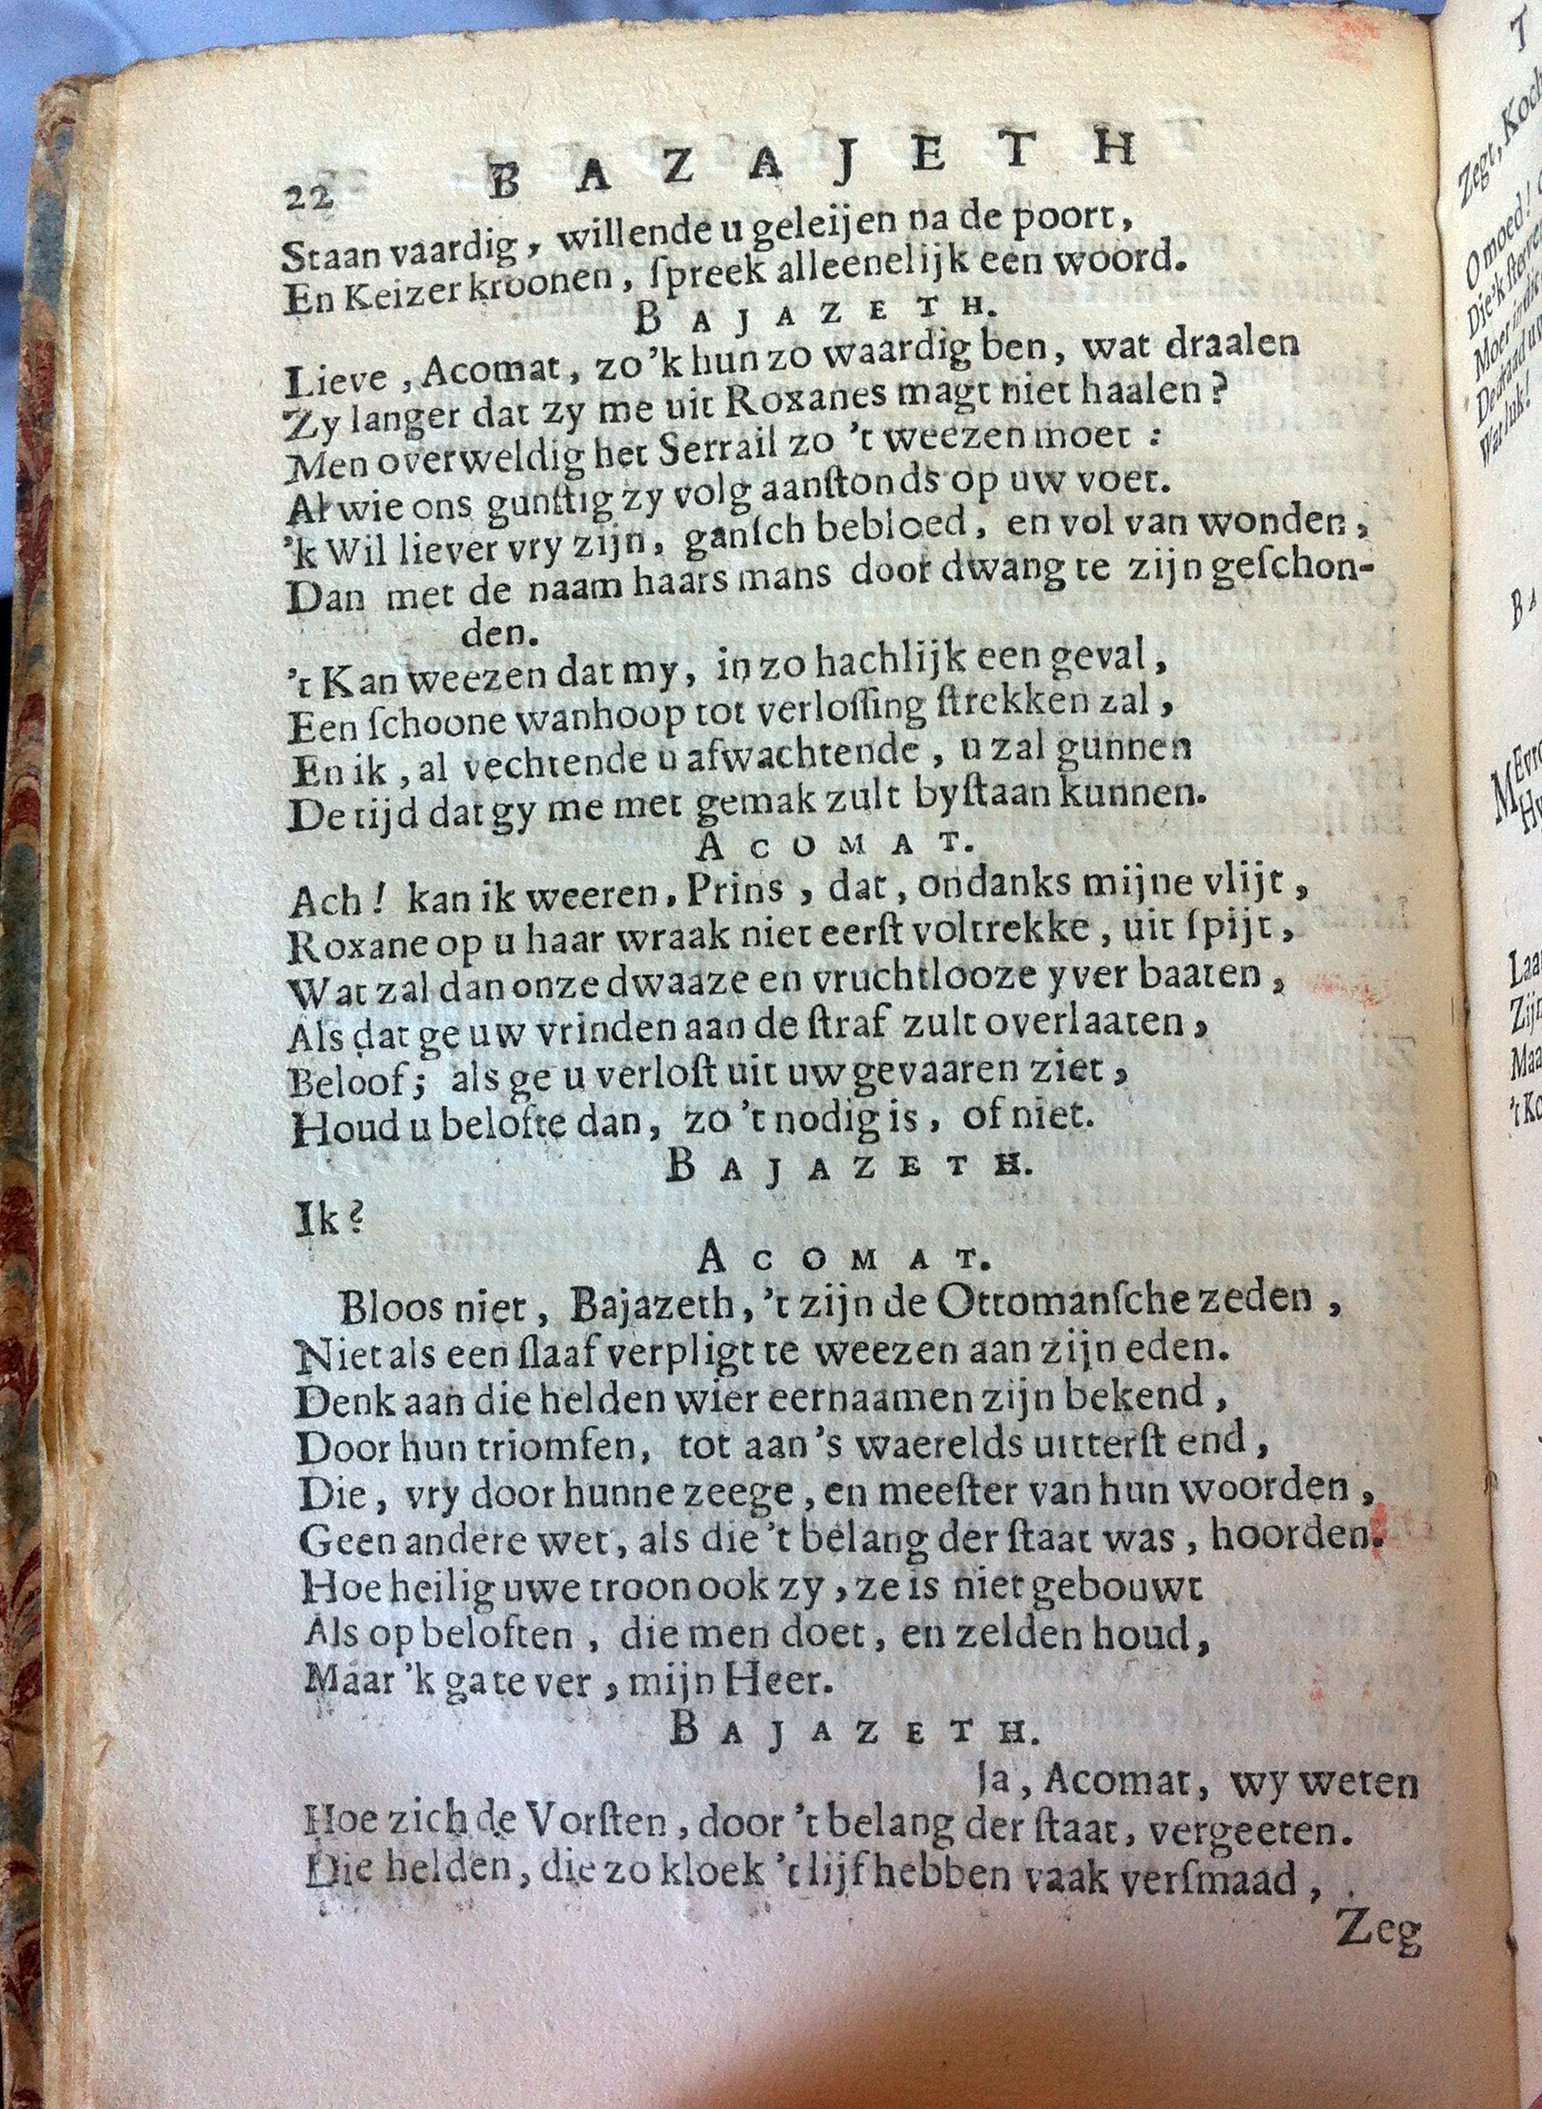 22 BAZAJETH
Staan vaardig, willende u geleijen na de poort,
En Keizer kroonen, ſpreek alleenelijk een woord.
BAJAZETH.
Lieve, Acomat, zo 'k hun zo waardig ben, wat draalen
Zy langer dat zy me uit Roxanes magt niet haalen?
Men overweldig het Serrail zo 't weezen moet:
Al wie ons gunſtig zy volg aanſtonds op uw voet.
'k Wil liever vry zijn, ganſch bebloed, en vol van wonden,
Dan met de naam haars mans door dwang te zijn geſchon-
den.
't Kan weezen dat my, in zo hachlijk een geval,
Een ſchoone wanhoop tot verloſſing ſtrekken zal,
En ik, al vechtende u afwachtende, u zal gunnen
De tijd dat gy me met gemak zult byſtaan kunnen.
ACOMAT.
Ach! kan ik weeren, Prins, dat, ondanks mijne vlijt,
Roxane op u haar wraak niet eerſt voltrekke, uit ſpijt,
Wat zal dan onze dwaaze en vruchtlooze yver baaten,
Als dat ge uw vrinden aan de ſtraf zult overlaaten,
Beloof; als ge u verloſt uit uw gevaaren ziet,
Houd u belofte dan, zo 't nodig is, of niet.
BAJAZETH.
Ik?
ACOMAT.
Bloos niet, Bajazeth, 't zijn de Ottomanſche zeden,
Niet als een ſlaaf verpligt te weezen aan zijn eden.
Denk aan die helden wier eernaamen zijn bekend,
Door hun triomfen, tot aan 's waerelds uitterſt end,
Die, vry door hunne zeege, en meeſter van hun woorden,
Geen andere wet, als die 't belang der ſtaat was, hoorden.
Hoe heilig uwe troon ook zy, ze is niet gebouwt
Als op beloften, die men doet, en zelden houd,
Maar 'k ga te ver, mijn Heer.
BAJAZETH.
Ja, Acomat, wy weten
Hoe zich de Vorſten, door 't belang der ſtaat, vergeeten.
Die helden, die zo kloek 't lijf hebben vaak verſmaad,
Zeg